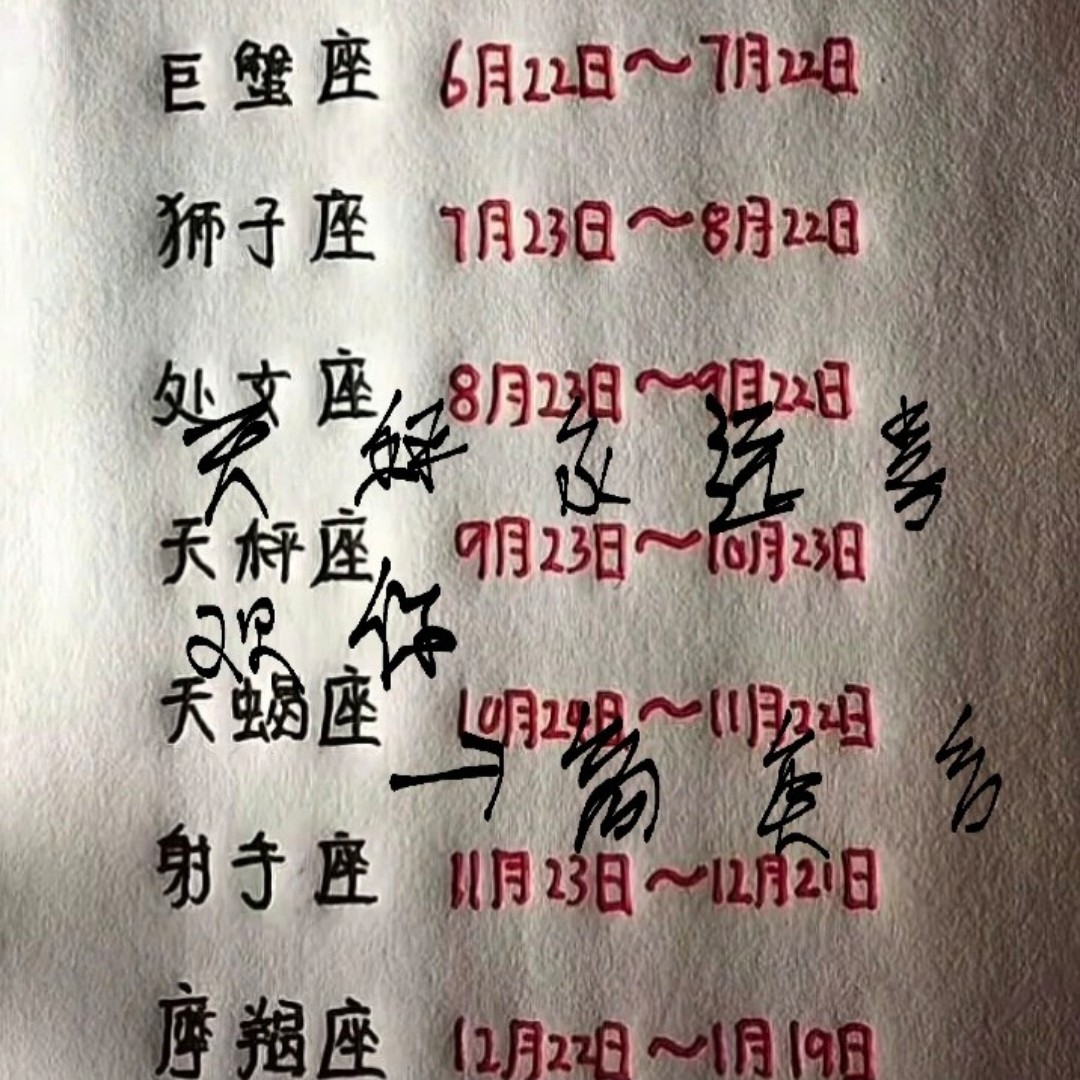 巨蟹座 6月22日～7月22日
狮子座 7月23日～8月22日
处文座 8月23日～9月22日
天秤座 9月23日～10月23日
你
天蝎座 10月24日～11月22日
射手座 11月23日～12月21日
摩羯座 12月22日～1月19日